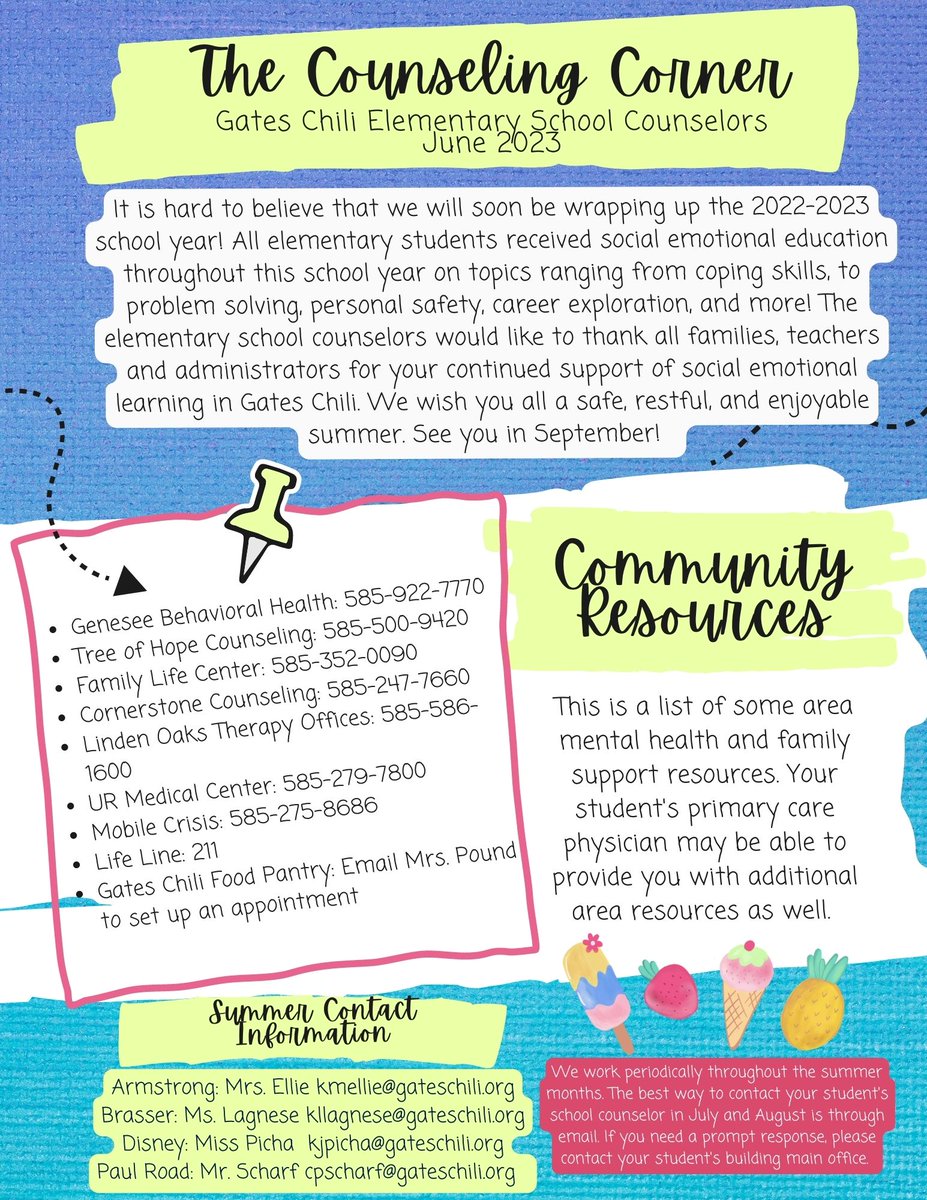 The Counseling Corner
Gates Chili Elementary School Counselors
June 2023
It is hard to believe that we will soon be wrapping up the 2022-2023
school year! All elementary students received social emotional education
throughout this school year on topics ranging from coping skills, to
problem solving, personal safety, career exploration, and more! The
elementary school counselors would like to thank all families, teachers
and administrators for your continued support of social emotional
learning in Gates Chili. We wish you all a safe, restful, and enjoyable
summer. See you in September!
• Genesee Behavioral Health: 585-922-7770
• Tree of Hope Counseling: 585-500-9420
• Family Life Center: 585-352-0090
• Cornerstone Counseling: 585-247-7660
• Linden Oaks Therapy Offices: 585-586-
1600
• UR Medical Center: 585-279-7800
• Mobile Crisis: 585-275-8686
• Life Line: 211
• Gates Chili Food Pantry: Email Mrs. Pound
to set up an appointment
Community
Resources
This is a list of some area
mental health and family
support resources. Your
student's primary care
physician may be able to
provide you with additional
area resources as well.
Summer Contact
Information
Armstrong: Mrs. Ellie kmellie@gateschili.org
Brasser: Ms. Lagnese kllagnese@gateschili.org
Disney: Miss Picha kjpicha@gateschili.org
Paul Road: Mr. Scharf cpscharf@gateschili.org
We work periodically throughout the summer
months. The best way to contact your student's
school counselor in July and August is through
email. If you need a prompt response, please
contact your student's building main office.